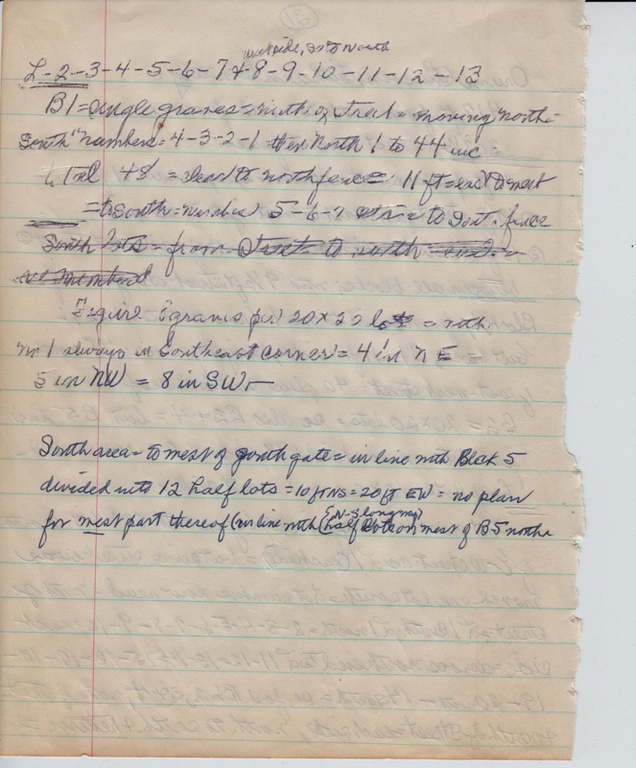 31
west side, So to North
L-2-3-4-5-6-7 + 8-9-10-11-12-13
B1 = single graves = north of = moving north =
South "numbers = 4-3-2-1 then North 1 to 44 inc =
total 48 = clear to north fence = 11 ft = east to west
= to South = number 5-6-7 etc = to fence
South lots = from to north =
numbered
Figure 8 graves per 20 x 20 lot = with
No 1 always in Southeast corner = 4 in NE
5 in NW = 8 in SW -
South area = to west of south gate = in line with Block 5
divided into 12 half lots = 10 ft NS = 20 ft EW = no plan
(N-S long way)
for west part thereof (in line with (half lots on west of B5 north =